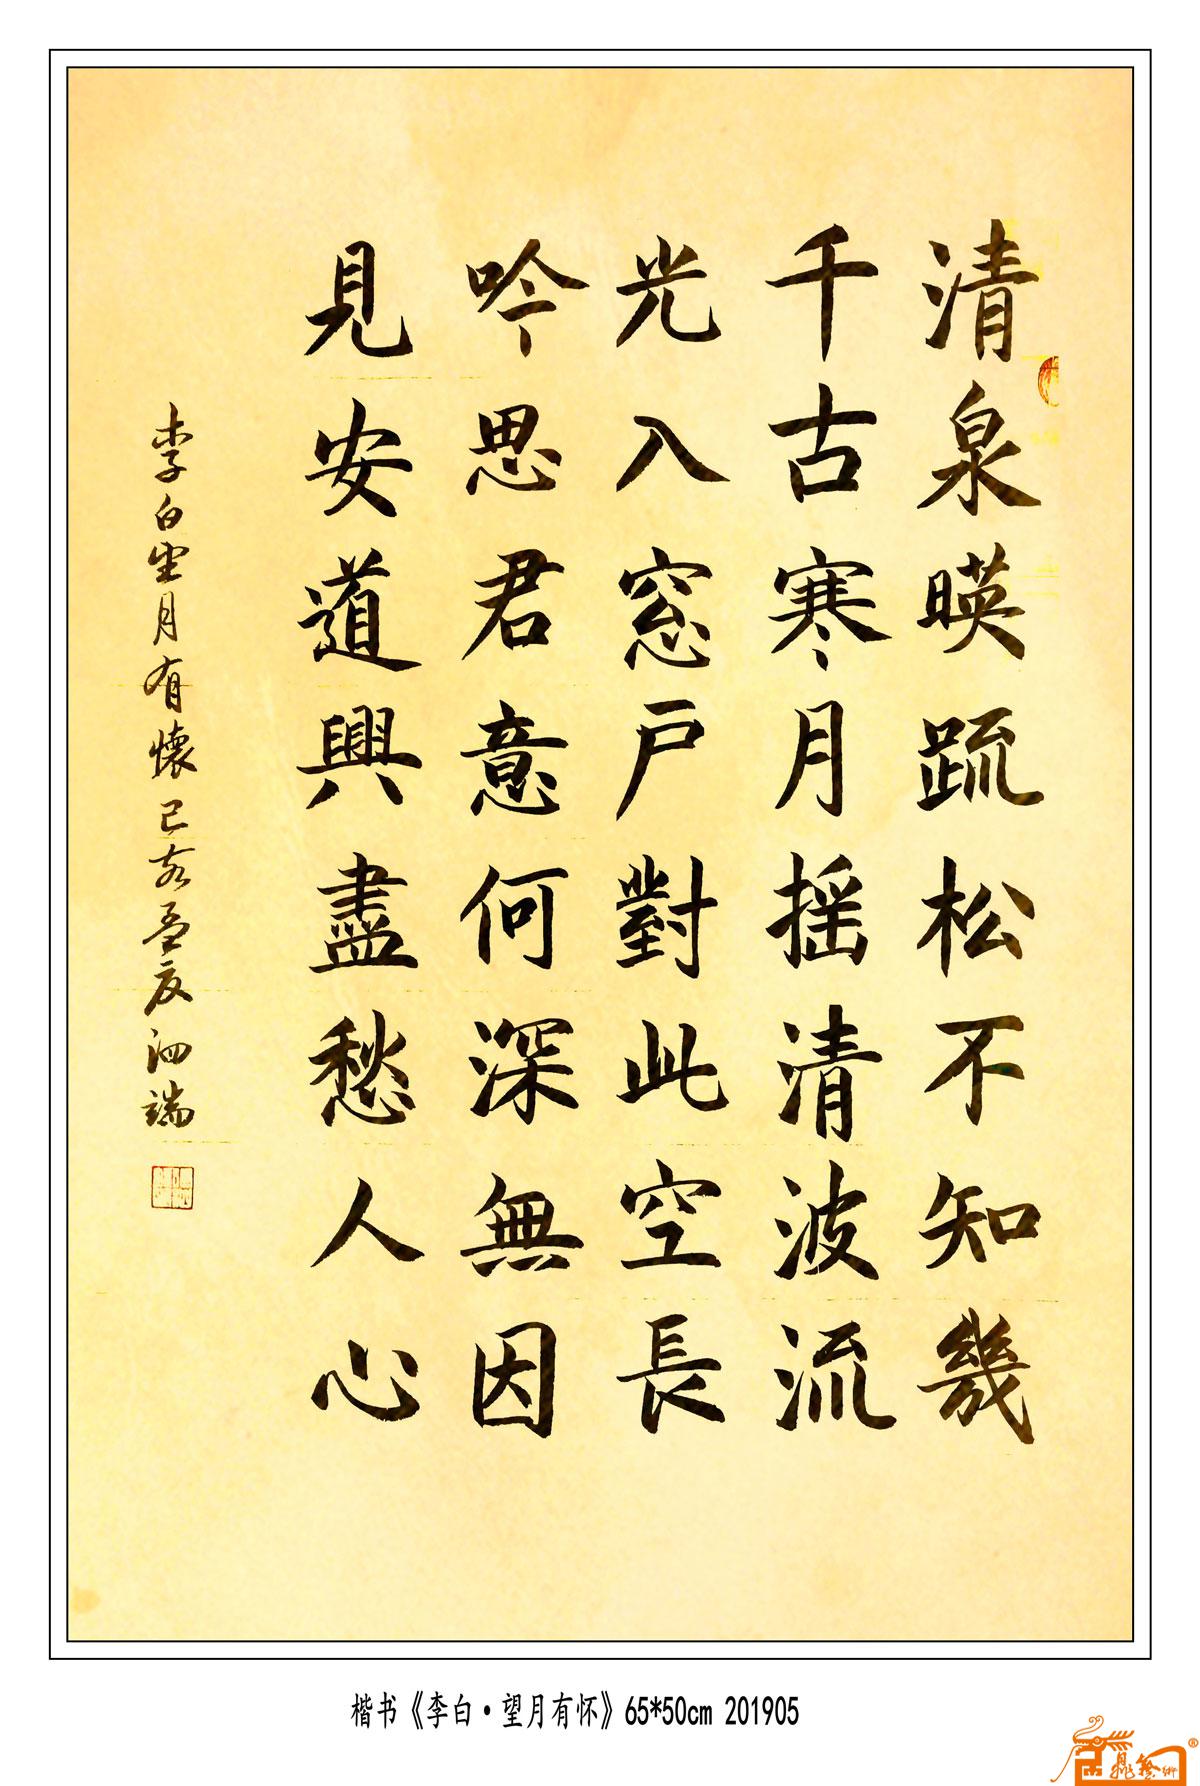 清泉暎疏松不知幾
千古寒月摇清波流
光入窓户對此空長
吟思君意何深無因
見安道興盡愁人心
李白望月有懷己亥孟夏泗端
楷书《李白·望月有怀》65*50cm 201905